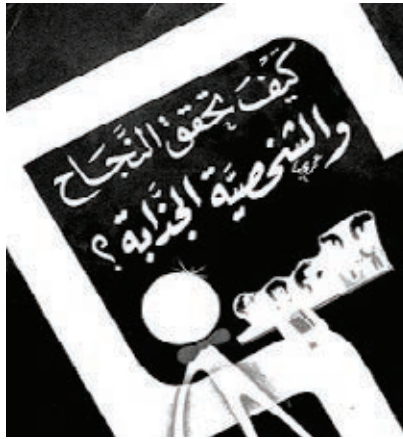 كَيْفَ تحقق النَّجَاح
والشخصيَّة الجذَّابة ؟